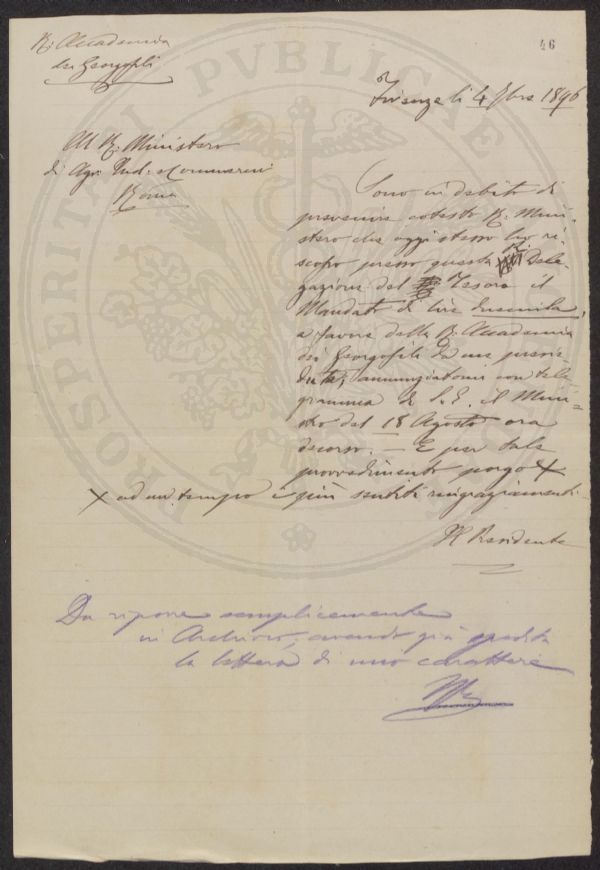 46
R. Accademia
dei Georgofili
Firenze li 4 9bre 1896
Al R. Ministero
di Agr. Ind. e Commercio
Roma
Sono in debito di
prevenire cotesto R. Mini-
stero che oggi stesso ho ri-
scosso presso questa R. Dele-
gazione del Tesoro il
Mandato di lire duemila,
a favore della R. Accademia
dei Georgofili da me presie-
duta, annunziatomi con tele-
gramma di S. E. il Mini-
stro del 18 Agosto ora
decorso. — E per tale
provvedimento porgo X
X ad un tempo i più sentiti ringraziamenti
Il Presidente
Da riporre semplicemente
in Archivio, avendo già spedita
la lettera di mio carattere
PROSPERITATI PVBLICAE